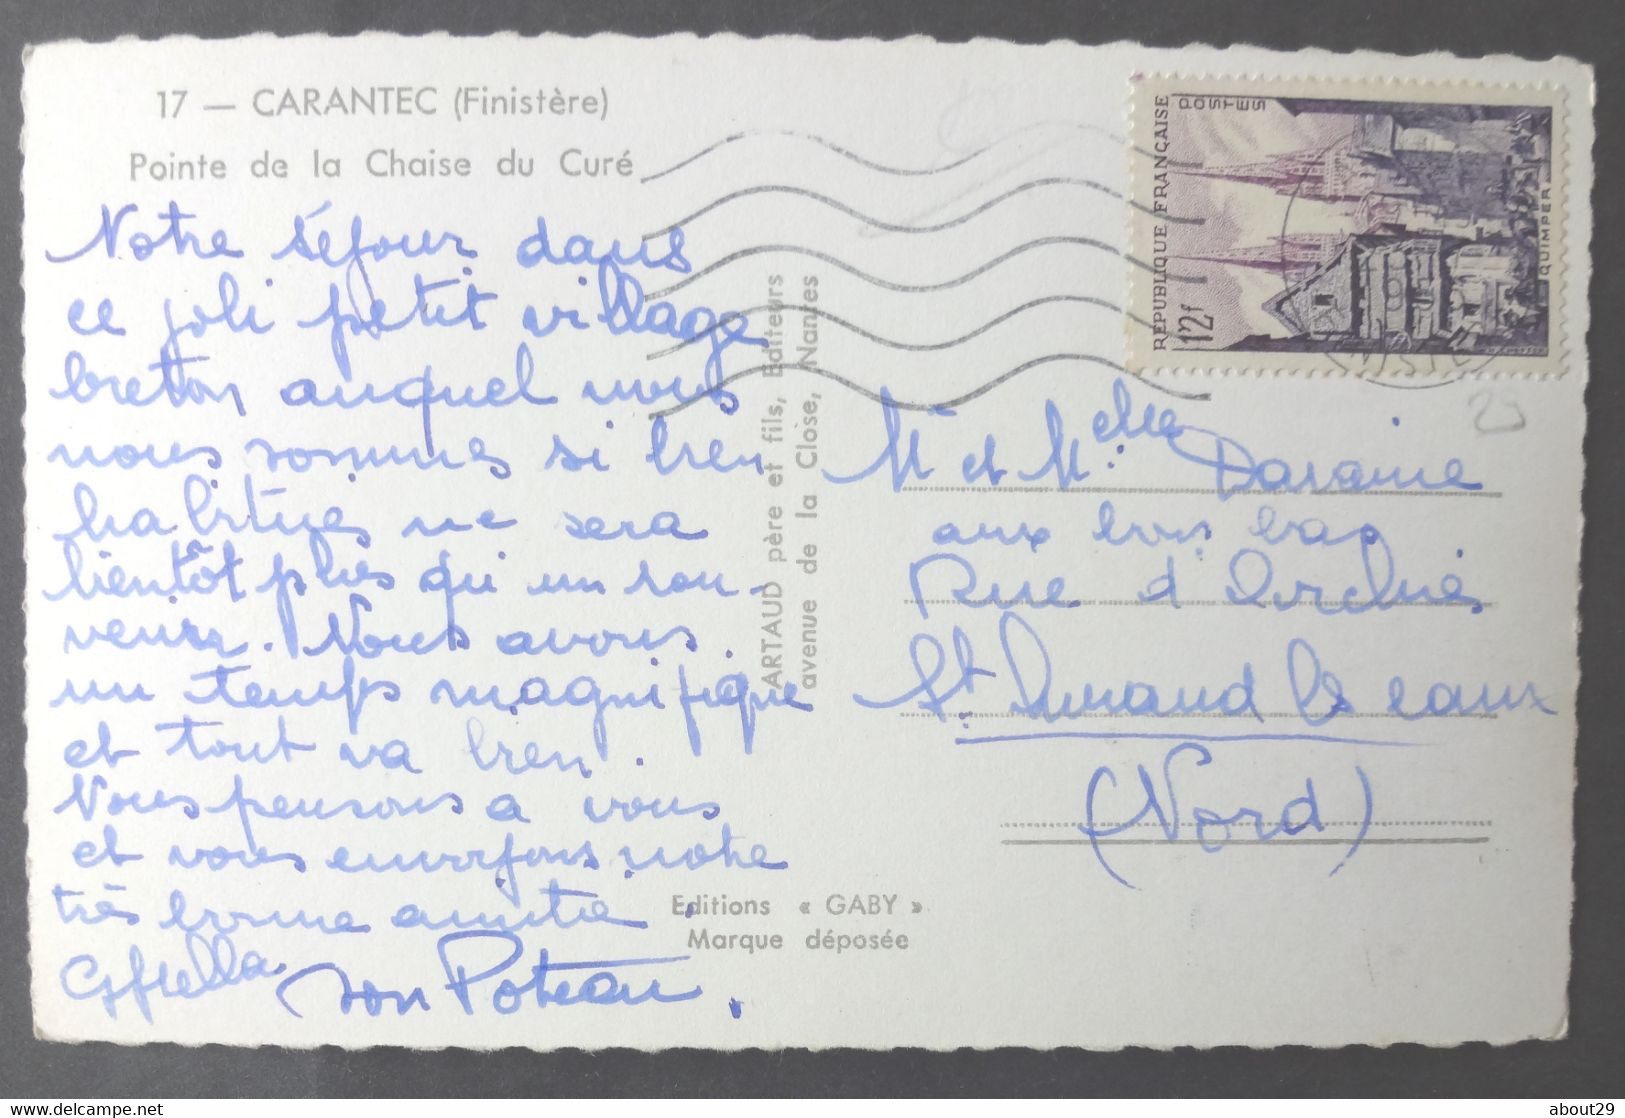 17 — CARANTEC (Finistère)
Pointe de la Chaise du Curé
Notre séjour dans
ce joli petit village
breton auquel nous
nous sommes si bien
habitués ne sera
bientôt plus qu'un sou-
venir. Nous avons
un temps magnifique
et tout va bien.
Nous pensons à vous
et vous envoyons notre
très bonne amitié.
Poteau.
ARTAUD père et fils, Editeurs
avenue de la Close, Nantes
Editions « GABY »
Marque déposée
REPUBLIQUE FRANÇAISE
POSTES
12f
QUIMPER
29
Mr et Melle Daraine
aux bons bas
Rue d'Orchies
St. Amand les eaux
(Nord)
delcampe.net
about29